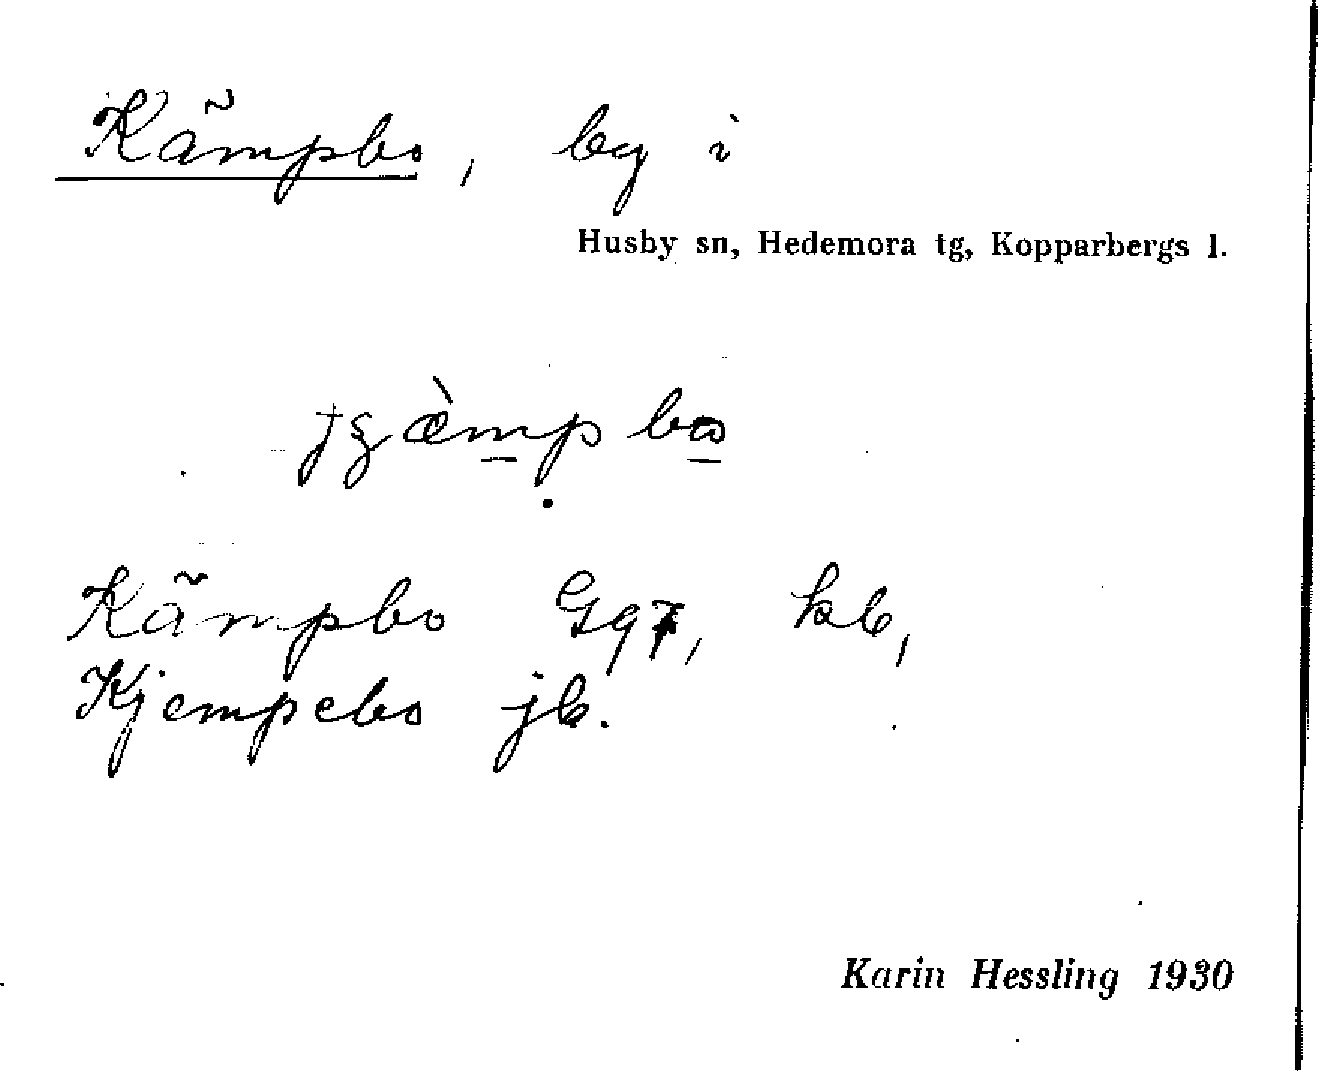 Kämpbo, by i
Husby sn, Hedemora tg, Kopparbergs l.
Kämpbo Gg7, kb,
Kjempebo jb.
Karin Hessling 1930